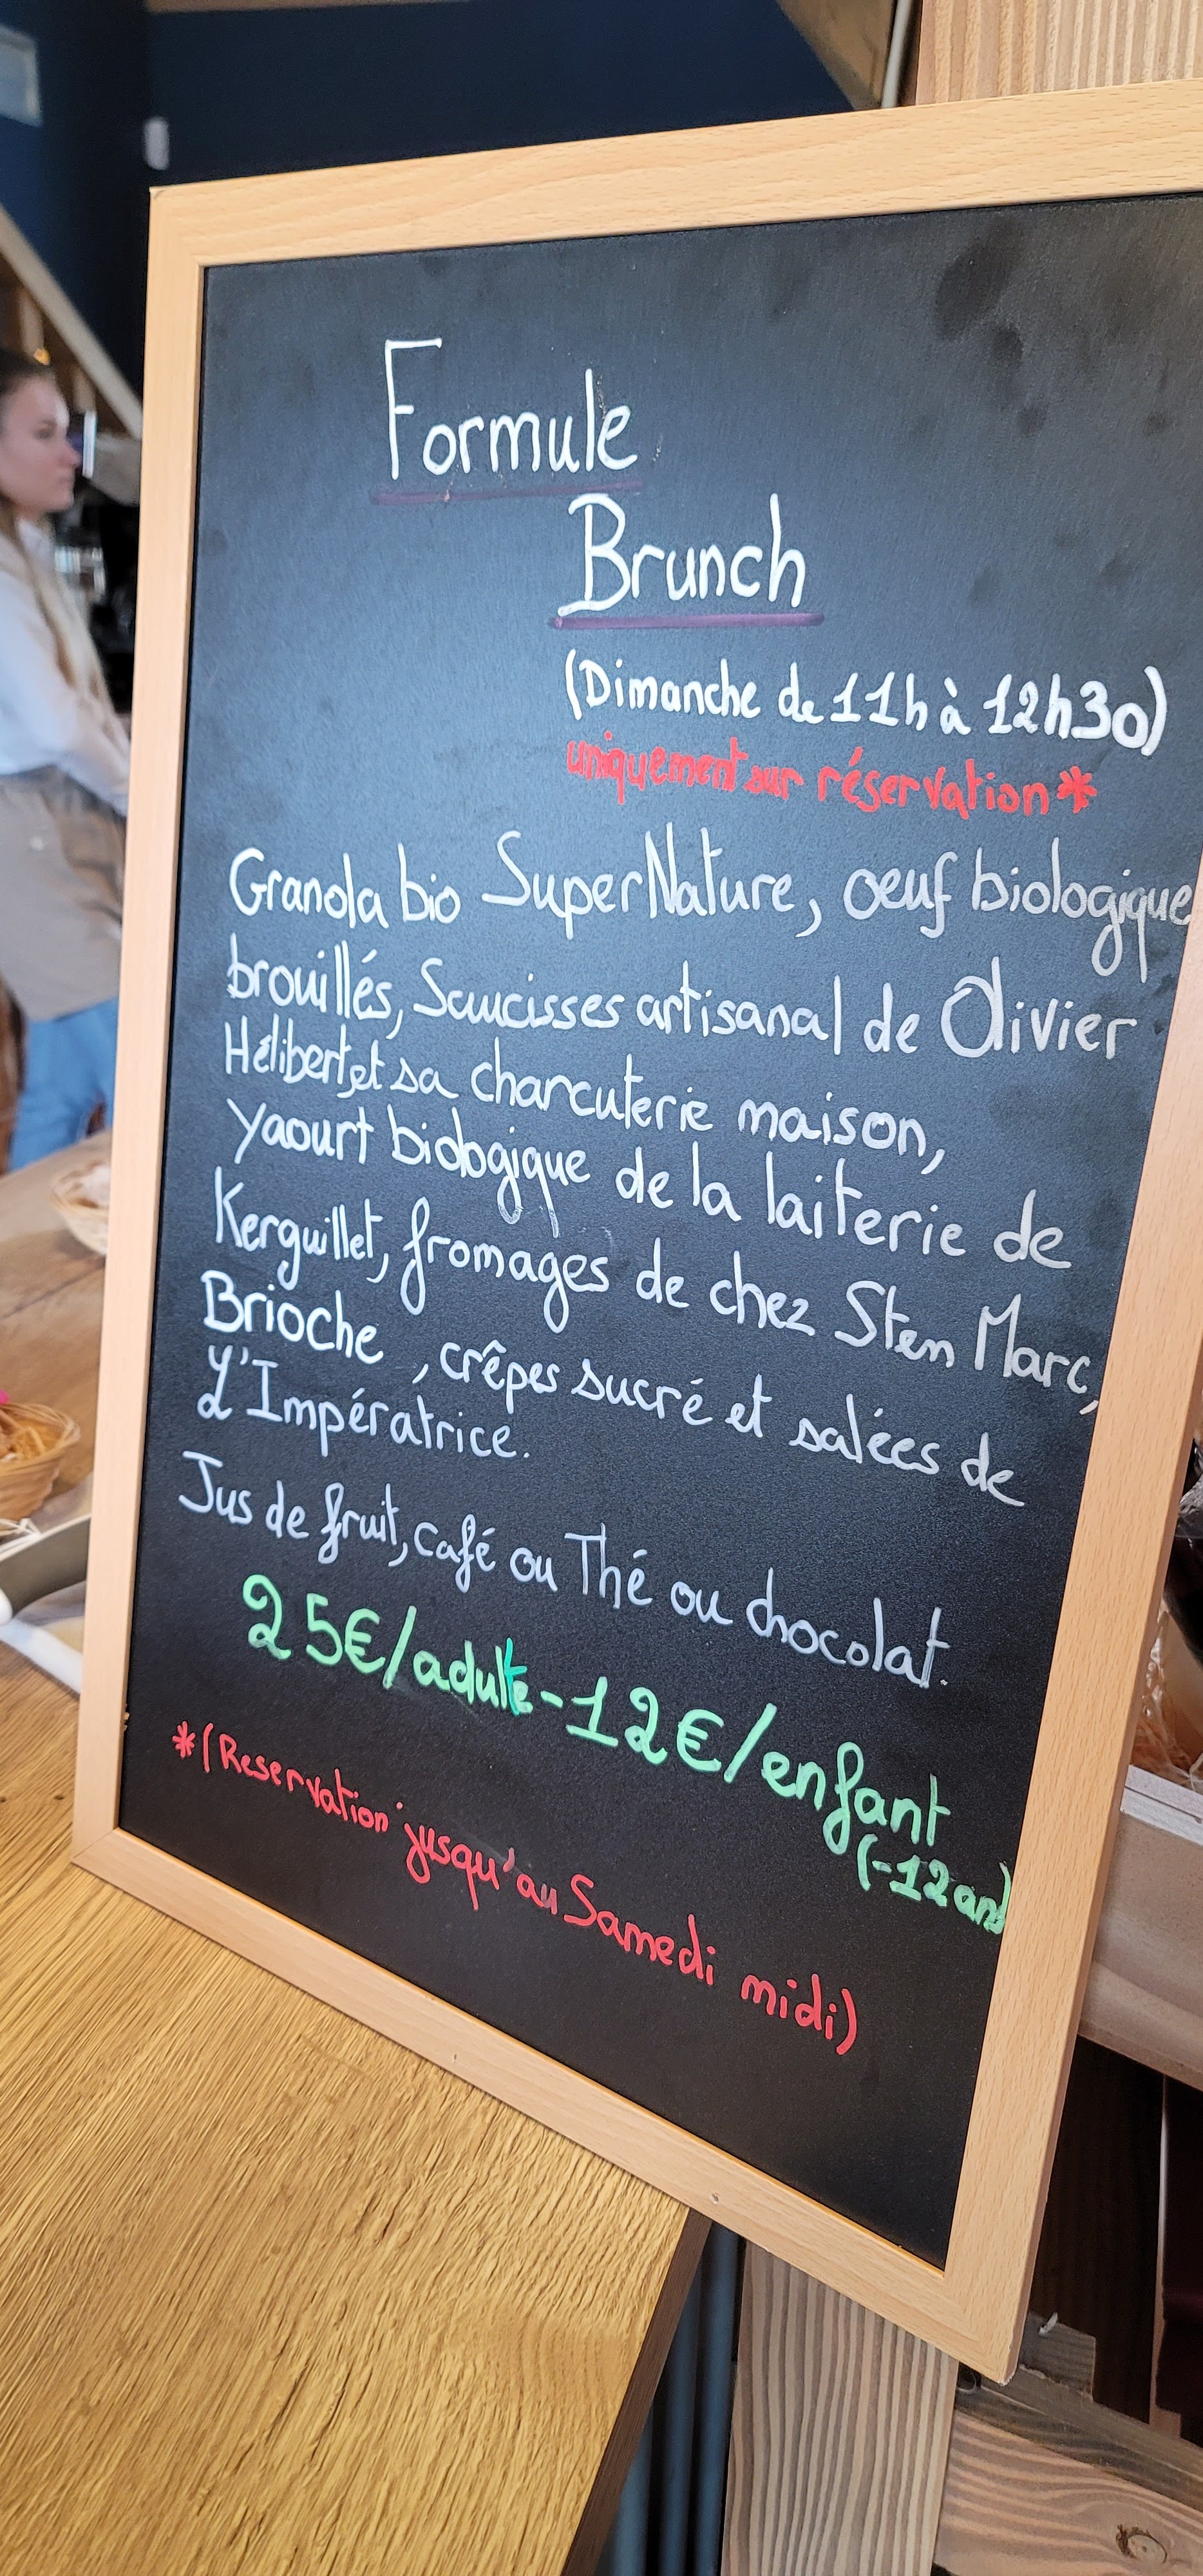 Formule
Brunch
(Dimanche de 11h à 12h30)
uniquement sur réservation*
Granola bio SuperNature, oeuf biologique
brouillés, Saucisses artisanal de Olivier
Hélibert, et sa charcuterie maison,
yaourt biologique de la laiterie de
Kerguillet, fromages de chez Sten Marc,
Brioche , crêpes sucré et salées de
L'Impératrice.
Jus de fruit, café ou Thé ou chocolat.
25€/adulte-12€/enfant
(-12ans)
*(Reservation jusqu'au Samedi midi)